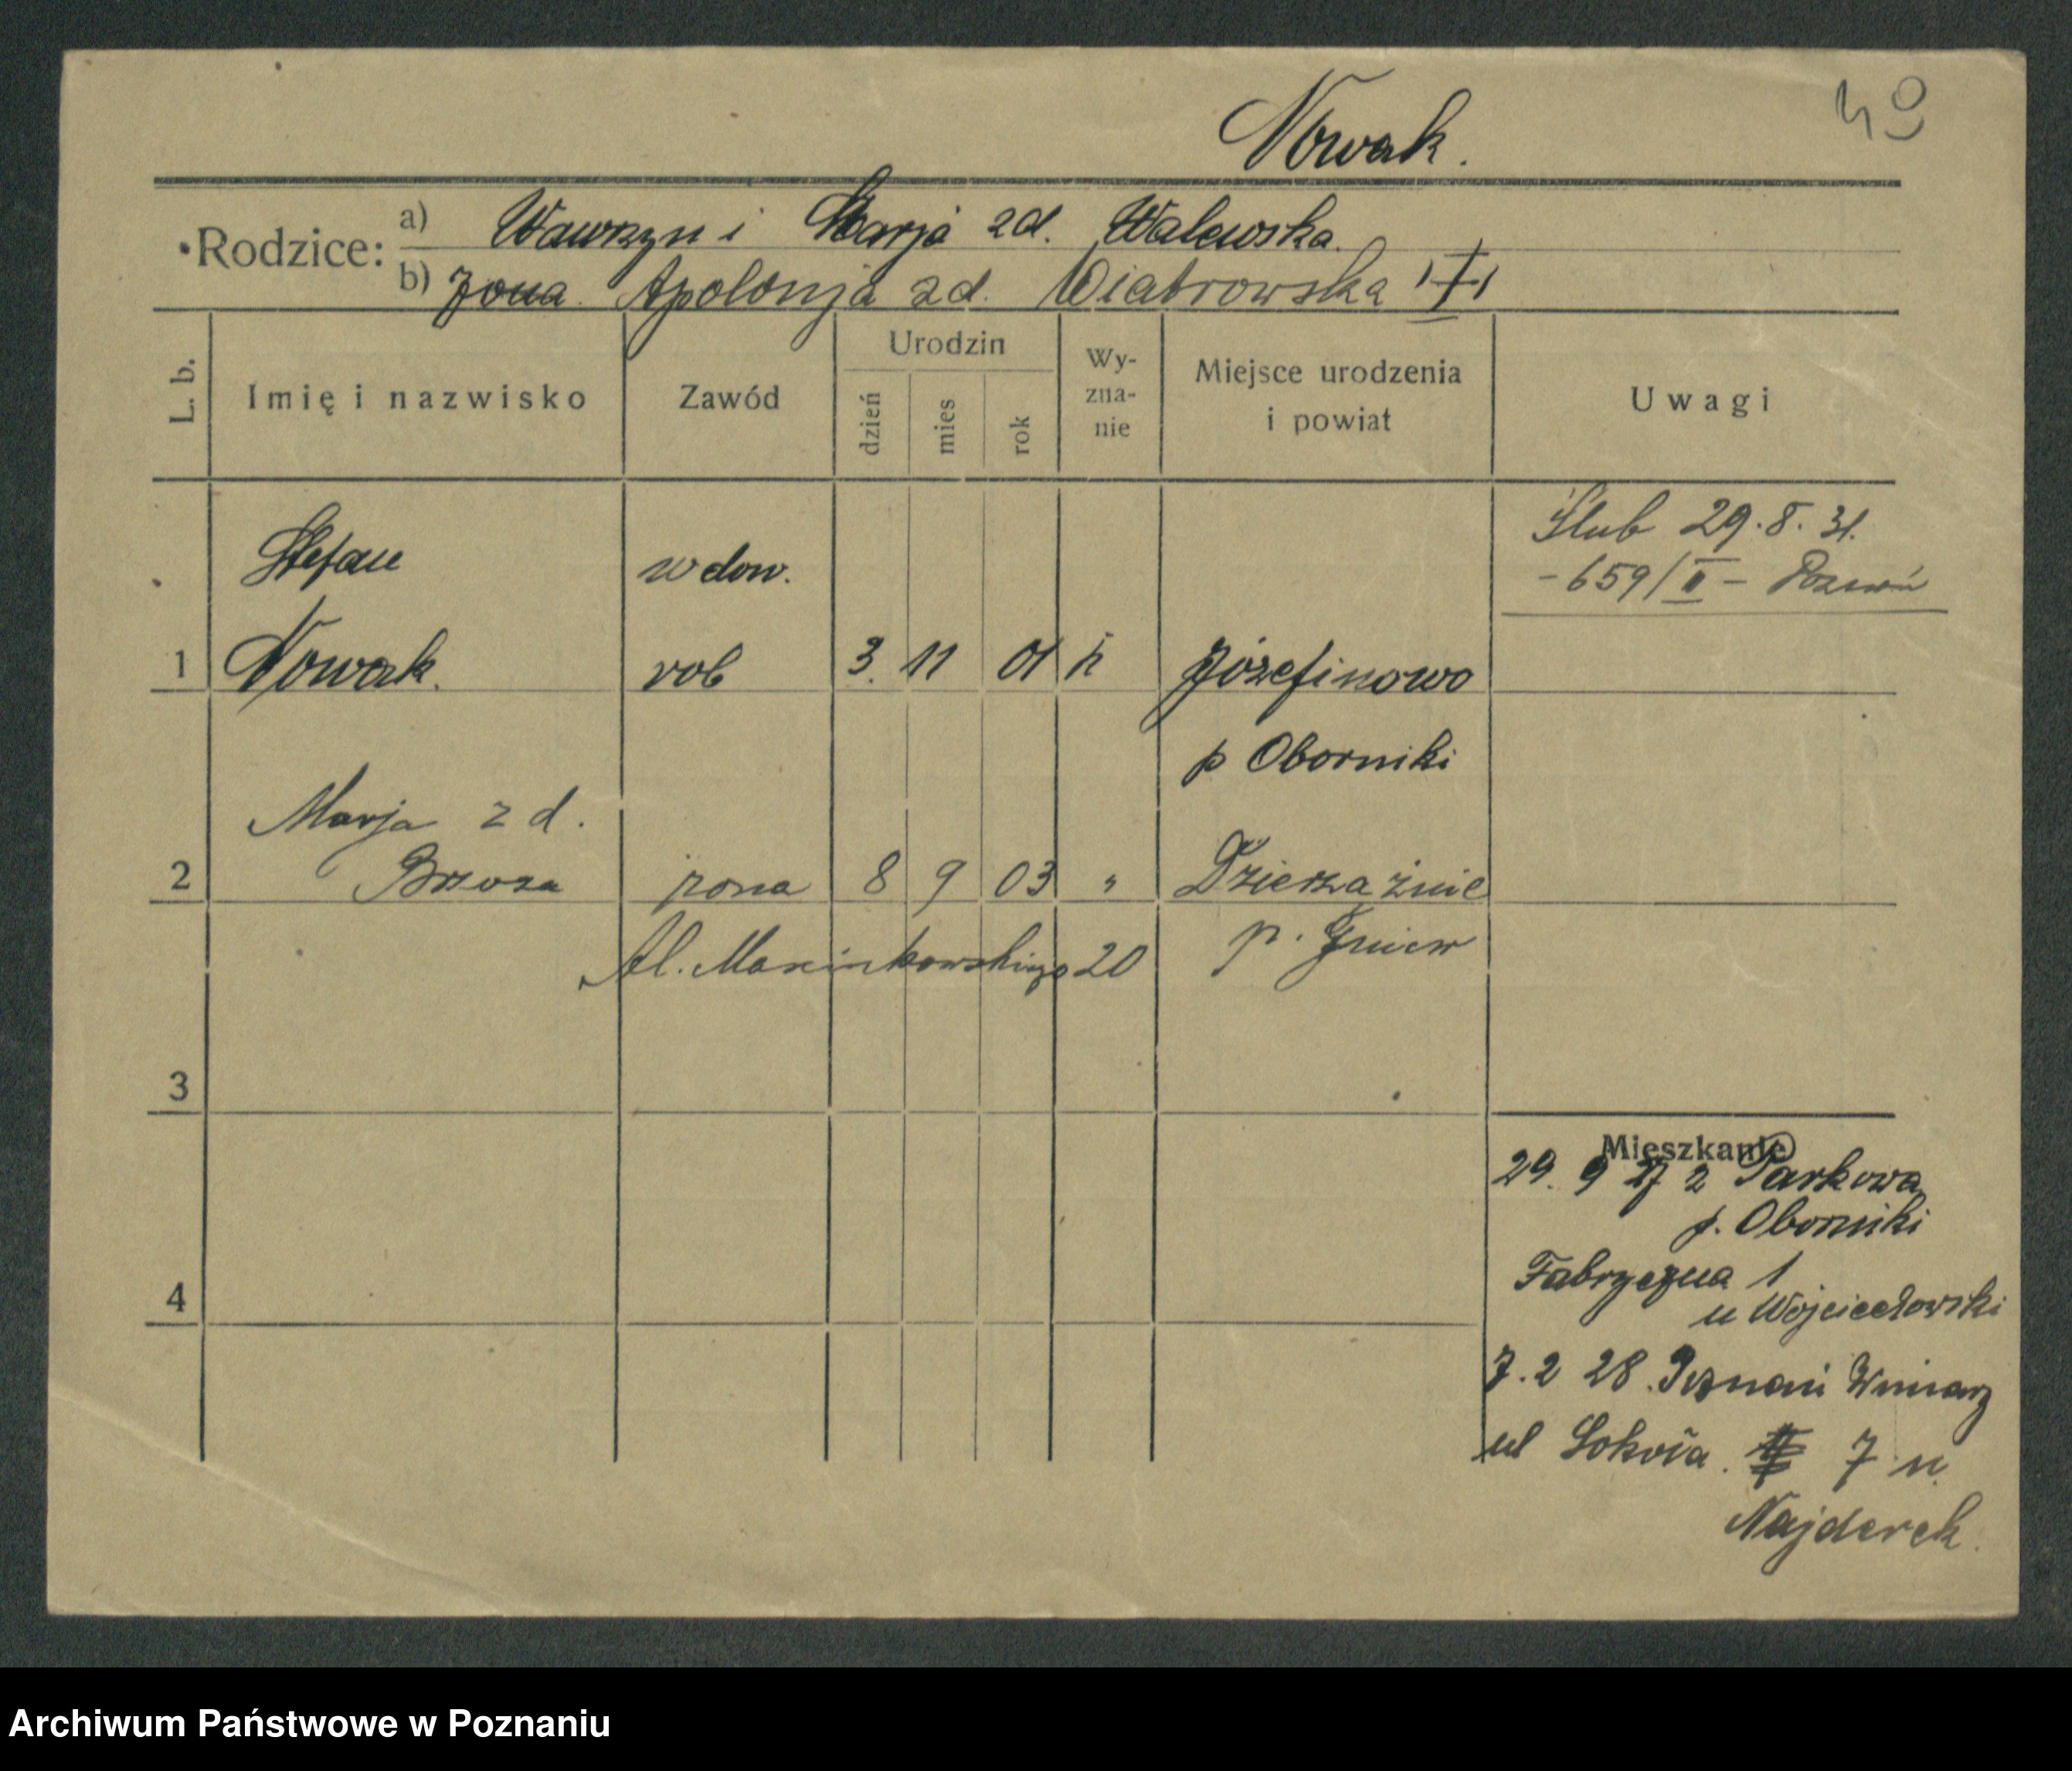 49
Nowak.
Rodzice:
a) Wawrzyn i Marja zd. Walewska.
b) Żona. Apolonja zd. Wiatrowska
L. b.
Imię i nazwisko
Zawód
Urodzin
dzień
mies
rok
Wy-
zna-
nie
Miejsce urodzenia
i powiat
Uwagi
Ślub 29.8.31.
- 659/II - Poznań
Stefan wdow.
1 Nowak. rob 3. 11 01 k Józefinowo
p Oborniki
Marja z d.
2 Brzoza żona 8 9 03 "
p. Gniew
Al. Marcinkowskiego 20
3
4
Mieszkanie
29. 9 27 z Parkowa
p. Oborniki
Fabryczna 1
u Wojciechowski
7.2 28. Poznań Winiary
ul Sokoła. 7 u.
Najderek.
Archiwum Państwowe w Poznaniu